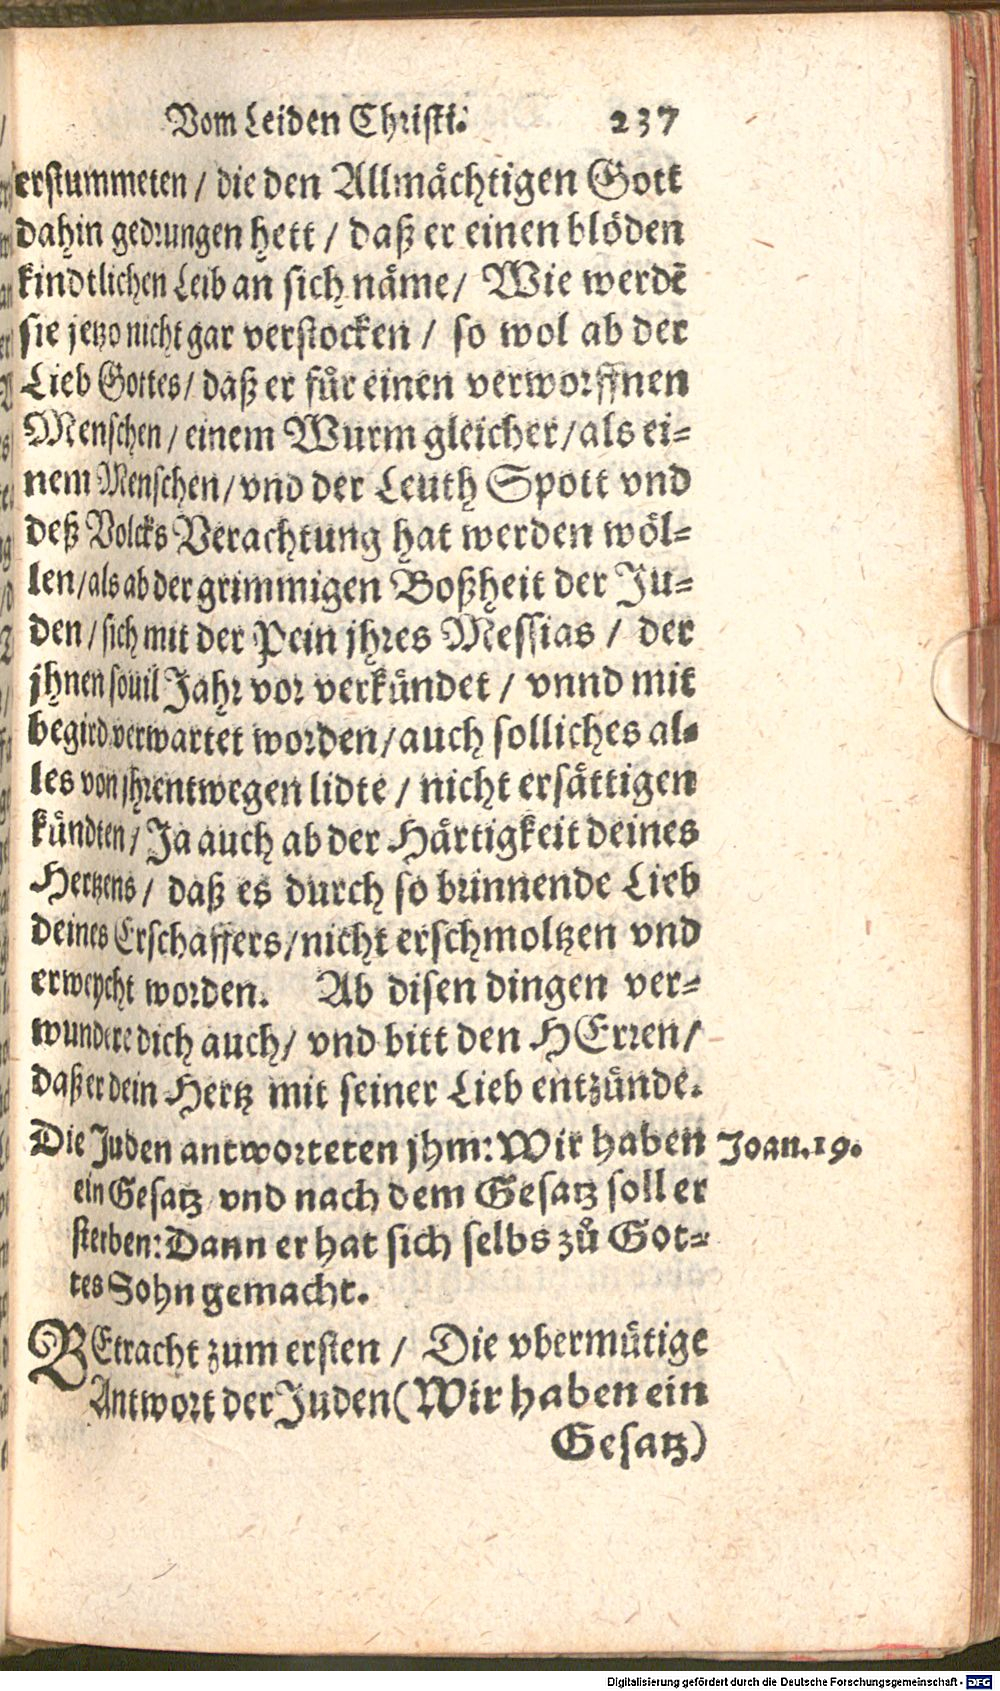 Vom Leiden Christi. 237
erstummeten / die den Allmächtigen Gott
dahin gedrungen hett / daß er einen blöden
kindtlichen Leib an sich näme / Wie werdẽ
sie jetzo nicht gar verstocken / so wol ab der
Lieb Gottes / daß er für einen verworffnen
Menschen / einem Wurm gleicher / als ei⸗
nem Menschen / vnd der Leuth Spott vnd
deß Volcks Verachtung hat werden wöl⸗
len / als ab der grimmigen Boßheit der Ju⸗
den / sich mit der Pein jhres Messias / der
jhnen souil Jahr vor verkündet / vnnd mit
begird verwartet worden / auch solliches al⸗
les von jhrentwegen lidte / nicht ersättigen
kündten / Ja auch ab der Härtigkeit deines
Hertzens / daß es durch so brinnende Lieb
deines Erschaffers / nicht erschmoltzen vnd
erweycht worden. Ab disen dingen ver⸗
wundere dich auch / vnd bitt den HErren /
daß er dein Hertz mit seiner Lieb entzünde.
Die Juden antworteten jhm: Wir haben Joan. 19.
ein Gesatz vnd nach dem Gesatz soll er
sterben: Dann er hat sich selbs zů Got⸗
tes Sohn gemacht.
BEtracht zum ersten / Die vbermütige
Antwort der Juden (Wir haben ein
Gesatz)
Digitalisierung gefördert durch die Deutsche Forschungsgemeinschaft - DFG